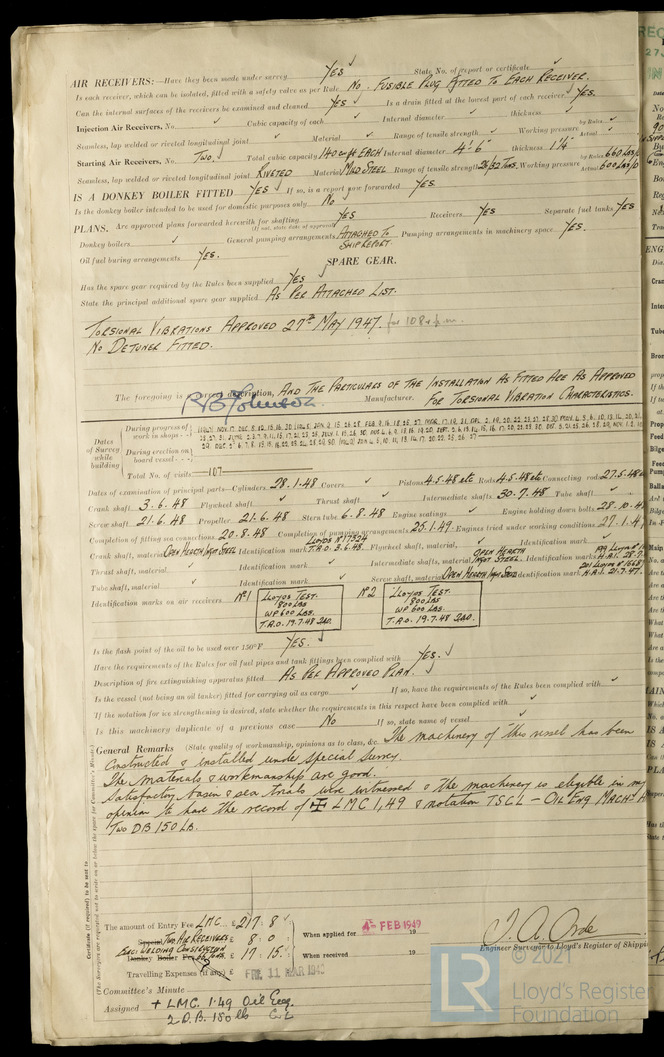 AIR RECEIVERS:—Have they been made under survey YES ✓ State No. of report or certificate ✓
Is each receiver, which can be isolated, fitted with a safety valve as per Rule No. FUSIBLE PLUG FITTED TO EACH RECEIVER.
Can the internal surfaces of the receivers be examined and cleaned YES ✓ Is a drain fitted at the lowest part of each receiver YES.
Injection Air Receivers, No. ✓ Cubic capacity of each ✓ Internal diameter ✓ thickness ✓
Seamless, lap welded or riveted longitudinal joint ✓ Material ✓ Range of tensile strength ✓ Working pressure by Rules ✓ Actual ✓
Starting Air Receivers, No. TWO. Total cubic capacity 140 c. ft EACH Internal diameter 4'-6" thickness 1¼"
Seamless, lap welded or riveted longitudinal joint RIVETED Material MILD STEEL Range of tensile strength 28/32 TONS. Working pressure by Rules 660 LBS/□ Actual 600 LBS/□
IS A DONKEY BOILER FITTED YES ✓ If so, is a report now forwarded YES.
Is the donkey boiler intended to be used for domestic purposes only No ✓
PLANS. Are approved plans forwarded herewith for shafting YES Receivers YES Separate fuel tanks YES
(If not, state date of approval)
Donkey boilers ✓ General pumping arrangements ATTACHED TO SHIP REPORT Pumping arrangements in machinery space YES.
Oil fuel burning arrangements YES.
SPARE GEAR.
Has the spare gear required by the Rules been supplied YES
State the principal additional spare gear supplied AS PER ATTACHED LIST.
TORSIONAL VIBRATIONS APPROVED 27th MAY 1947. for 108 r.p.m.
NO DETUNER FITTED.
The foregoing is a correct description, AND THE PARTICULARS OF THE INSTALLATION AS FITTED ARE AS APPROVED
Manufacturer. FOR TORSIONAL VIBRATION CHARACTERISTICS.
Dates of Survey while building
During progress of work in shops - -
During erection on board vessel - - -
Total No. of visits 107
Dates of examination of principal parts—Cylinders 28.1.48 Covers ✓ Pistons 4.5.48 etc Rods 4.5.48 etc. Connecting rods 27.5.48
Crank shaft 3.6.48 Flywheel shaft ✓ Thrust shaft ✓ Intermediate shafts 30.7.48 Tube shaft ✓
Screw shaft 21.6.48 Propeller 21.6.48 Stern tube 6.8.48 Engine seatings ✓ Engine holding down bolts 28.10.4
Completion of fitting sea connections 20.8.48 Completion of pumping arrangements 25.1.49. Engines tried under working conditions 27.1.4
Crank shaft, material OPEN HEARTH INGOT STEEL Identification mark LLOYDS No 17324 T.A.O. 3.6.48. Flywheel shaft, material, ✓ Identification mark ✓
Thrust shaft, material ✓ Identification mark ✓ Intermediate shafts, material OPEN HEARTH INGOT STEEL. Identification marks
Tube shaft, material ✓ Identification mark ✓ Screw shaft, material OPEN HEARTH INGOT STEEL Identification mark H.A.I. 21.7.47.
Identification marks on air receivers No 1 LLOYDS TEST. 800 LBS WP 600 LBS. T.A.O. 19.7.48 No 2 LLOYDS TEST. 800 LBS WP 600 LBS. T.A.O. 19.7.48
Is the flash point of the oil to be used over 150°F YES. ✓
Have the requirements of the Rules for oil fuel pipes and tank fittings been complied with YES. ✓
Description of fire extinguishing apparatus fitted AS PER APPROVED PLAN. ✓
Is the vessel (not being an oil tanker) fitted for carrying oil as cargo ✓ If so, have the requirements of the Rules been complied with ✓
If the notation for ice strengthening is desired, state whether the requirements in this respect have been complied with ✓
Is this machinery duplicate of a previous case No If so, state name of vessel ✓
General Remarks (State quality of workmanship, opinions as to class, &c. The machinery of this vessel has been
constructed & installed under special survey.
The materials & workmanship are good.
Satisfactory basin & sea trials were witnessed & the machinery is eligible in my
opinion to have the record of ✠ LMC 1,49 & notation TSCL – OIL ENG MACHY
TWO DB 150 LB.
Certificate (if required) to be sent to
(The Surveyors are requested not to write on or below the space for Committee's Minute.)
The amount of Entry Fee LMC £ 217 : 8 :
Special TWO AIR RECEIVERS £ 8 : 0 :
Donkey Boiler Fee £ 17 : 15 :
Travelling Expenses (if any) £
When applied for 4th FEB 1949 19
When received 19
Engineer Surveyor to Lloyd's Register of Shipping
FRI. 11 MAR 1949
Committee's Minute
Assigned + LMC. 1.49 Oil Eng.
2 D.B. 150 lb C.L
LR
© 2021
Lloyd's Register
Foundation